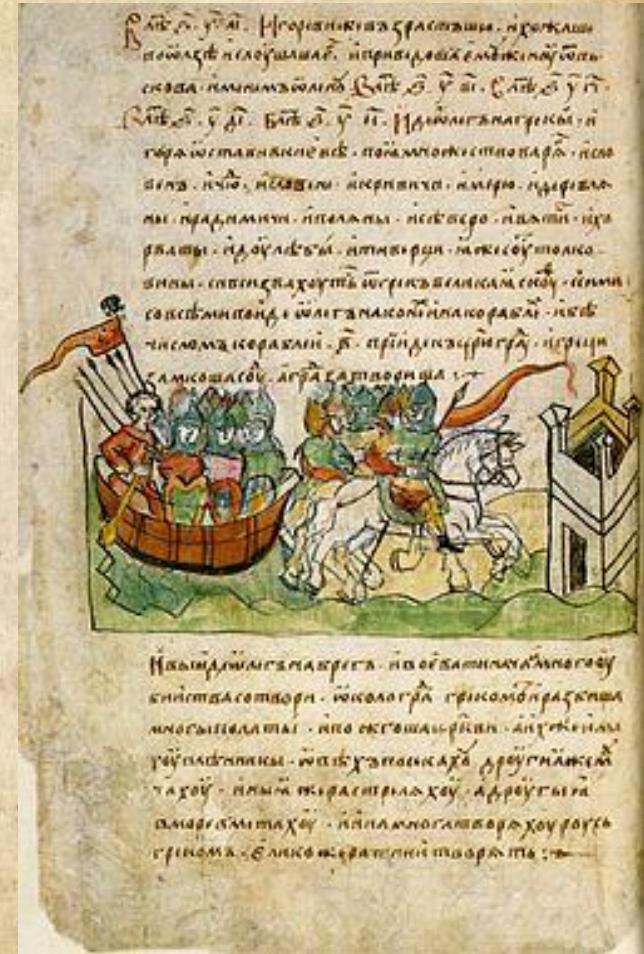 В лѣⷮ. ҂ѕ҃. у҃. аі҃. Игореви же възрастъшю. и хожаше
по ѡлзѣ и слоушашеⷮ. и приведоша емоу женоу ѿ пь
скова. именемъ ѡленоу В лѣⷮ. ҂ѕ҃. у҃ ві҃. В лѣⷮ. ҂ѕ҃ у҃ гі҃.
В лѣⷮ. ҂ѕ҃. у҃ ді҃. В лѣⷮ. ҂ѕ҃. у҃ еі҃. Иде ѡлегъ на грекы. и
горѧ ѡставивъ киевѣ. поꙗ множество варѧⷢ. и сло
венъ. и чюⷣ. и словени. и кривичи. и мерю. и деревлѧ
ны. и радимичи. и полѧны. и сѣверо. и вѧтичи. и хо
рваты. и доулѣбы. и тиверци. ꙗже соуть толко
вины. си вси звахоуть ѿ грекъ великаꙗ скоуⷴ. и сими
со всѣми поиде ѡлегъ на конеⷯ и на кораблеⷯ. и бѣ
числомъ кораблеи. в҃. прїиде къ цр҃югрⷣа. и греци
замкоша соуⷣ. а граⷣ затвориша
И выиде ѡлегъ на брегъ. и воевати нача. и много оу
биіства сотвори. ѡколо граⷣ грекомъ. и разбиша
многы полаты. и пожгоша црк҃ви. а иⷯ же има
хоу плѣнникы. ѡвѣхъ посекахоу дроугиꙗ же мⷱу
чахоу. иныꙗ же растрѣлѧхоу. а дроугыꙗ
в море вметахоу. и ина многа творѧхоу роусь
грекомъ. елико же ратнии творѧть